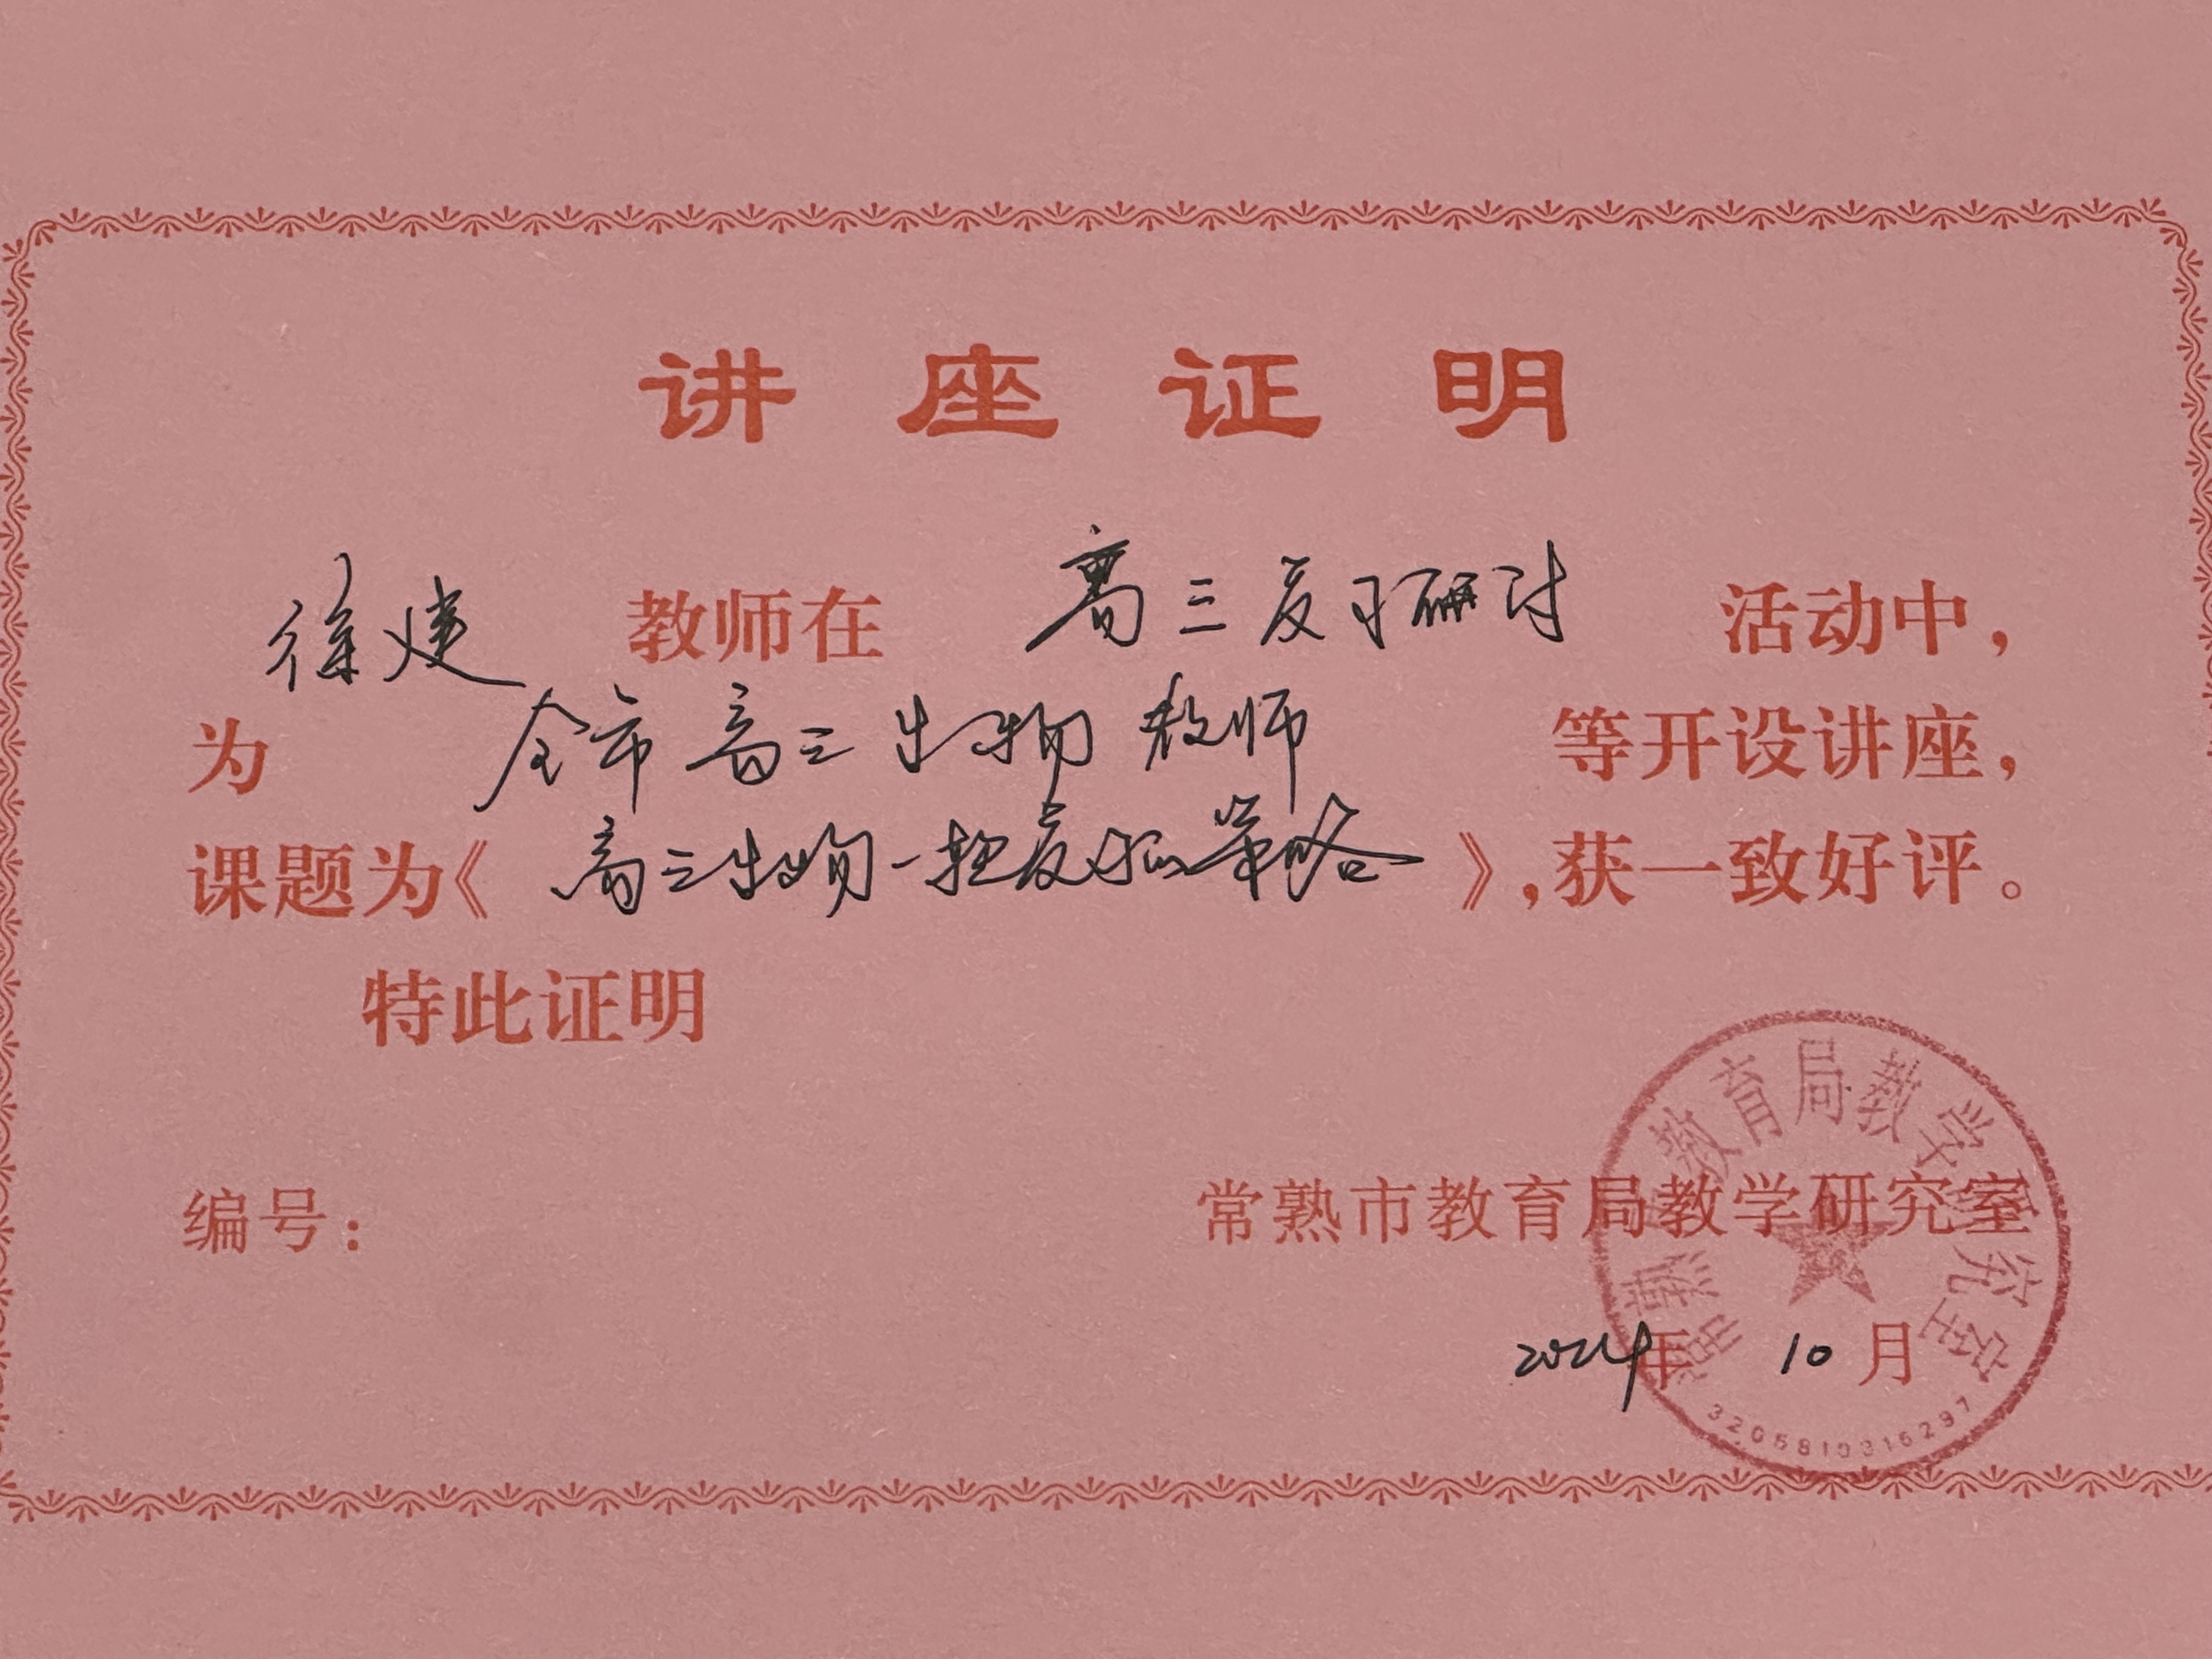 讲座证明
徐建 教师在 高三复习研讨 活动中，
为 全市高三生物教师 等开设讲座，
课题为《高三生物一轮复习策略》，获一致好评。
特此证明
编号：
常熟市教育局教学研究室
2024年 10月
常熟市教育局教学研究室